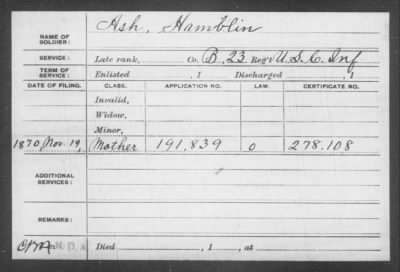 NAME OF SOLDIER: Ash, Hamblin
SERVICE: Late rank, Co. B, 23 Reg't U.S.C. Inf
TERM OF SERVICE: Enlisted , 1 Discharged , 1
DATE OF FILING. CLASS. APPLICATION NO. LAW. CERTIFICATE NO.
Invalid,
Widow,
Minor,
1870, Nov. 19, Mother 191,839 0 278.108
ADDITIONAL SERVICES:
REMARKS:
Died , 1 , at